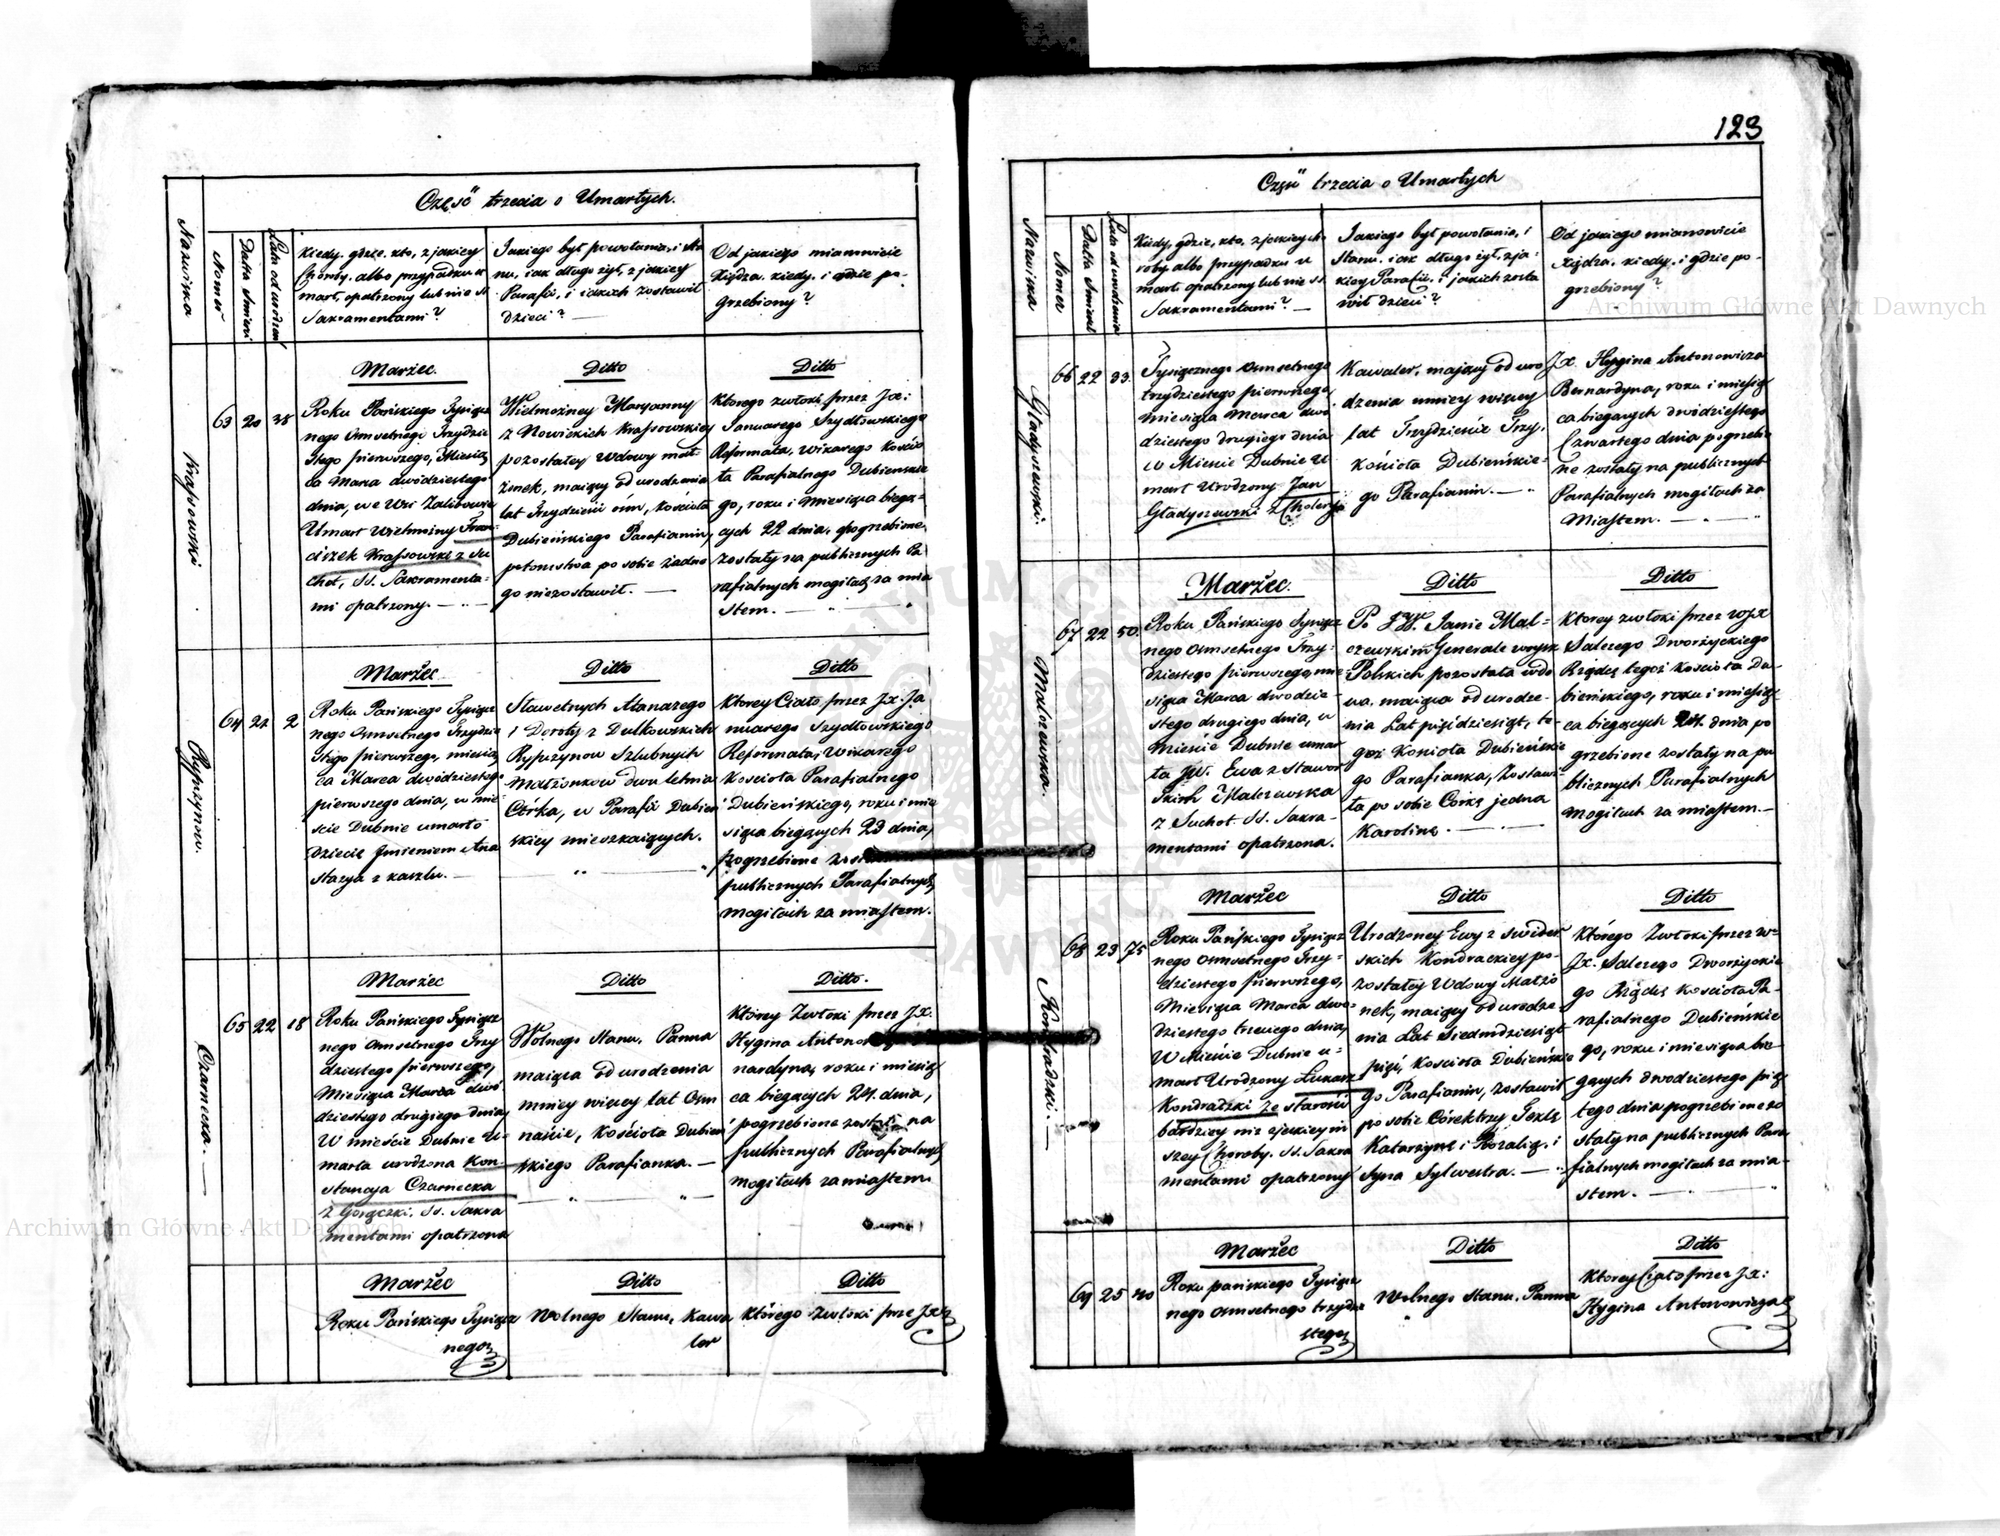 123
Część trzecia o Umarłych.
Nazwiska
Numer
Datta Smierci
Lata od urodzenia
Kiedy, gdzie, kto, z jakiey
Choroby, albo przypadku u
marł, opatrzony lub nie SS.
Sakramentami?
Jakiego był powołania, i sta
nu, iak długo żył, z jakiey
Parafii, i iakich zostawił
Dzieci? —
Od jakiego mianowicie
Xiędza, kiedy, i gdzie po-
grzebiony?
Krassowski
63 20 38
Marzec.
Roku Pańskiego Tysiącz
nego Osmsetnego Trzydzie
stego pierwszego, Miesią
ca Marca dwódziestego
dnia, we Wsi
Umarł Wielmożny Fran-
ciszek Krassowski z Su
chot, SS. Sakramenta-
mi opatrzony. —
Ditto
Wielmożney Maryanny
z Nowickich Krassowskiey
pozostałey Wdowy mał-
żonek, maiący od urodzenia
lat Trzydzieści ośm, kościoła
Dubieńskiego Parafianin,
potomstwa po sobie żadne
go niezostawił. —
Ditto
Którego zwłoki przez Jx:
Januarego Szydłowskiego
Reformata, wikarego kościo
ła Parafialnego Dubieńskie
go, roku i miesiąca bieżą-
cych 22 dnia, pogrzebione
zostały na publicznych Pa
rafialnych mogiłach za mia
stem. —
Rypszynow.
64 22 2
Marzec
Roku Pańskiego Tysiącz
nego Osmsetnego Trzydzie
stego pierwszego, miesią
ca Marca dwódziestego
pierwszego dnia, w mie
ście Dubnie umarło
Dziecię Imieniem Ana
stazya z kaszlu. —
Ditto
Sławetnych Atanazego
i Doroty z Dulkowskich
Rypszynow Szlubnych
Małżonkow dwu letnia
Córka, w Parafii Dubień
skiey mieszkaiących.
Ditto
Ktorey Ciało przez Jx. Ja
nuarego Szydłowskiego
Reformata, Wikarego
Kościoła Parafialnego
Dubieńskiego, roku i mie
siąca bieżących 23 dnia,
pogrzebione
publicznych Parafialnych
mogiłach za miastem.
Czarnecka. —
65 22 18
Marzec
Roku Pańskiego Tysiącz
nego Osmsetnego Trzy
dziestego pierwszego,
Miesiąca Marca dwó
dziestego drugiego dnia,
W mieście Dubnie u-
marła urodzona Kon-
stancya Czarnecka
z Gorączki, SS. Sakra
mentami opatrzona
Ditto
Wolnego Stanu, Panna
maiąca od urodzenia
mniey więcey lat Osm
naście, kościoła Dubień
skiego Parafianka. —
Ditto.
Którey Zwłoki przez Jx.
Hygina
nardyna, roku i miesią
ca bieżących 24. dnia,
pogrzebione zostały na
publicznych Parafialnych
mogiłach za miastem.
Marzec
Roku Pańskiego Tysiącz
nego
Ditto
Wolnego Stanu, Kawa
ler
Ditto
Którego zwłoki prze Jx
Część trzecia o Umarłych
Nazwiska
Numer
Datta Smierci
Lata od urodzenia
Kiedy, gdzie, kto, z jakiey cho
roby, albo przypadku u
marł, opatrzony lub nie SS.
Sakramentami? —
Jakiego był powołania, i
Stanu, iak długo żył, z ja-
kiey Parafii, i jakich zosta
wił dzieci?
Od jakiego mianowicie
Xiędza, kiedy, i gdzie po-
grzebiony?
Gładyszewski.
66 22 33.
Tysiącznego osmsetnego
trzydziestego pierwszego
miesiąca Marca dwó
dziestego drugiego dnia
w Mieście Dubnie U
marł Urodzony Jan
Gładyszewski z Cholery
Kawaler, maiący od uro
dzenia mniey więcey
lat Trzydzieście Trzy,
kościoła Dubieńskie-
go Parafianin. —
Jx. Hygina Antonowicza
Bernardyna, roku i miesią
ca bieżących dwódziestego
Czwartego dnia pogrzebio
ne zostały na publicznych
Parafialnych mogiłach za
Miastem. —
Malczewska.
67 22 50.
Marzec.
Roku Pańskiego Tysiącz
nego Osmsetnego Trzy-
dziestego pierwszego, mie
siąca Marca dwódzie-
stego drugiego dnia, w
Mieście Dubnie umar
ła JW. Ewa z
Malczewska
z Suchot SS. Sakra-
mentami opatrzona.
Ditto
Po JW. Janie Mal-
czewskim Generale woysk
Polskich pozostała wdo
wa, maiąca od urodze-
nia Lat pięćdziesiąt, te-
goż Kościoła Dubieńskie
go Parafianka, Zostawi
ła po sobie Córkę jedną
Karolinę. —
Ditto
Ktorey zwłoki przez WJX
Salezego Dworżyckiego
Rządcę tegoż Kościoła Du-
bieńskiego, roku i miesią-
ca bieżących 24. dnia po
grzebione zostały na pu
blicznych Parafialnych
mogiłach za miastem. —
Kondradzki. —
68 23 75
Marzec
Roku Pańskiego Tysiącz
nego Osmsetnego Trzy-
dziestego pierwszego,
Miesiąca Marca dwó-
dziestego trzeciego dnia,
W Mieście Dubnie u-
marł Urodzony Łukasz
Kondradzki ze starości
bardziey niż z jakiey in
szey Choroby, SS. Sakra
mentami opatrzony
Ditto
Urodzoney Ewy z
skich Kondrackiey po-
zostałey Wdowy Małżo
nek, maiący od urodze
nia Lat Siedmdziesiąt
pięć, Kościoła Dubieńskie
go Parafianin, zostawił
po sobie Córek trzy Teklę
Katarzynę i Rozalią, i
Syna Sylwestra. —
Ditto
Którego Zwłoki przez W
Jx. Salezego Dworżyckie
go Rządcę Kościoła Pa-
rafialnego Dubieńskie
go, roku i miesiąca bie-
żących dwódziestego pią
tego dnia pogrzebione zo
stały na publicznych Para
fialnych mogiłach za mia-
stem. —
69 25 40
Marzec
Roku pańskiego Tysiącz
nego osmsetnego trzydzie
stego
Ditto
Wolnego Stanu, Panna
Ditto
Ktorey Ciało przez Jx:
Hygina Antonowicza
Archiwum Główne Akt Dawnych
Archiwum Główne Akt Dawnych